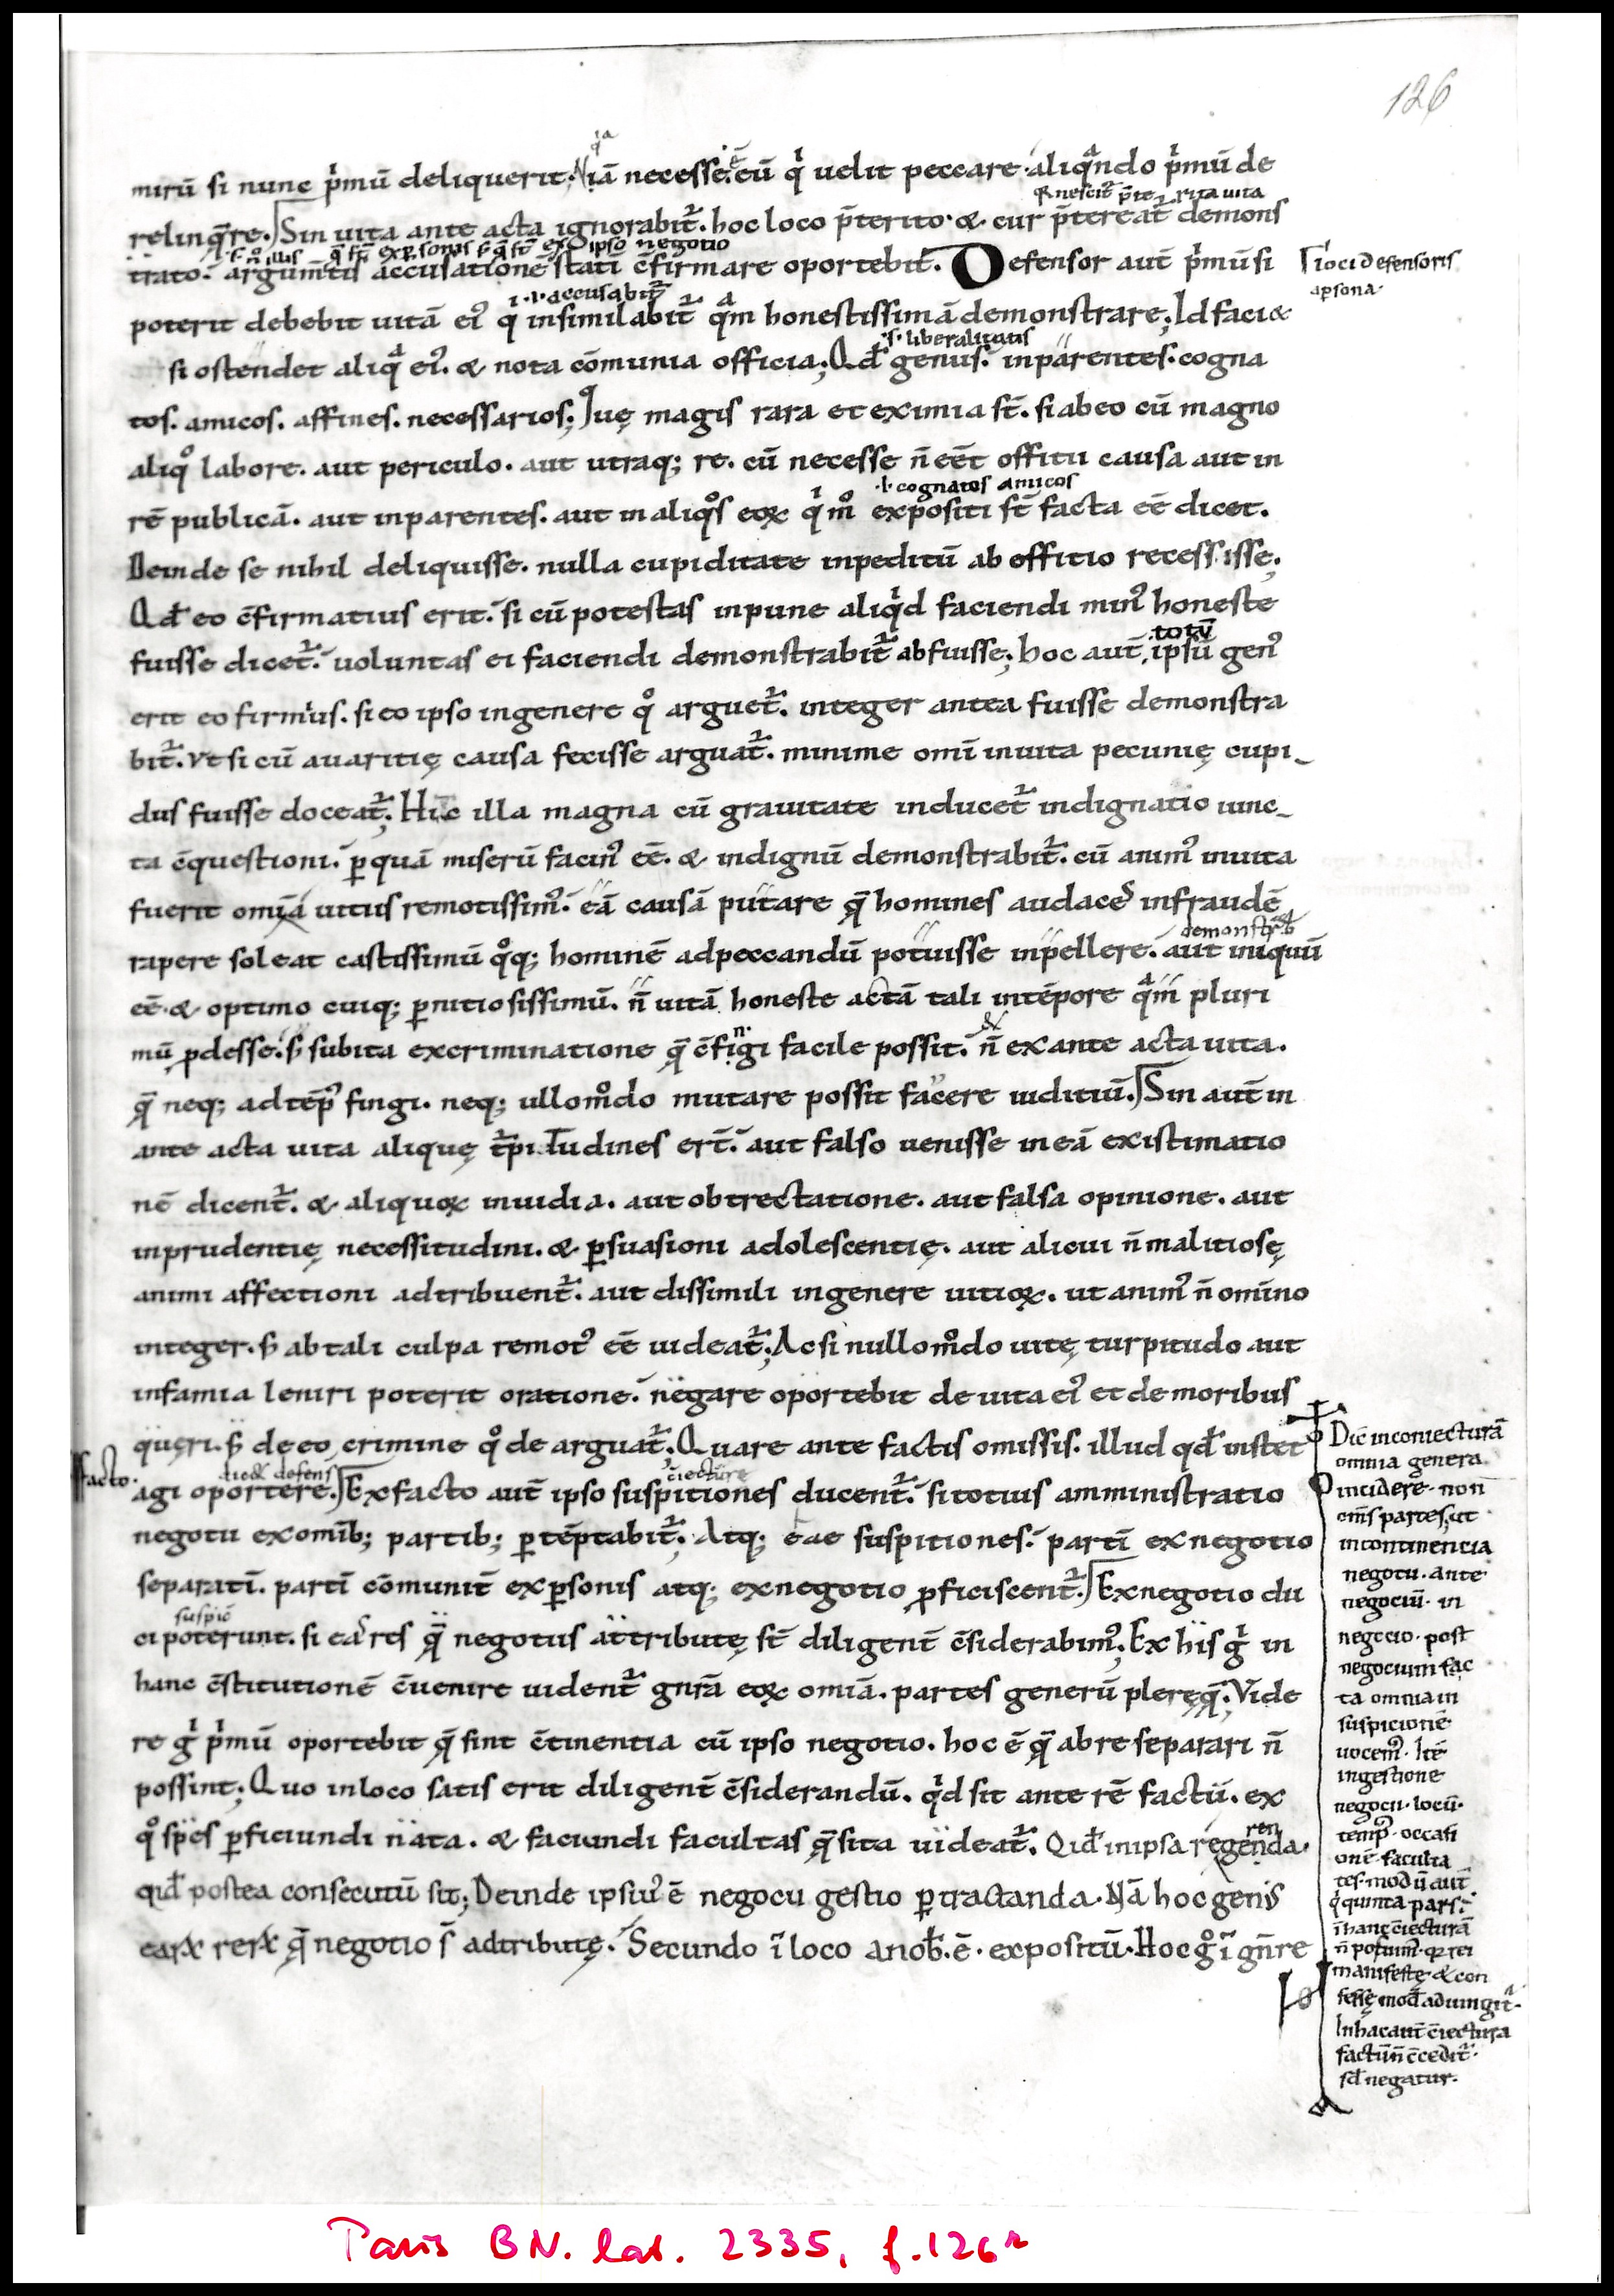 126
mirū si nunc p̄mū deliquerit. Nā necesse ē eū q̇ uelit peccare aliqndo p̄mū de
relinq̄re. Sin uita ante acta ignorabit̄. hoc loco p̄terito. & cur p̄tereat̄ demons
trato. argum̄tis accusationē stati c̄firmare oportebit. Defensor aut̄ p̄mū si
poterit debebit uitā ei᷒ q̇ insimilabit̄ qm honestissimā demonstrare; Id faci&
si ostendet aliq ei᷒. & nota cōmunia officia; Qđ genus. inparentes. cogna
tos. amicos. affines. necessarios; Quę magis rara et eximia st̄. si ab eo cū magno
aliqͦ labore. aut periculo. aut utraq; re. cū necesse n̄ eēt offitii causa aut in
rē publicā. aut inparentes. aut in aliqͦs eoꝝ q̇ mͦ expositi st̄ facta eē dicet.
Deinde se nihil deliquisse. nulla cupiditate inpeditū ab offitio recessisse;
Qđ eo c̄firmatius erit. si cū potestas inpune aliq̇d faciendi min᷒ honeste
fuisse dicet̄. uoluntas ei faciendi demonstrabit̄ abfuisse; hoc aut̄ ipsū gen᷒
erit eo firmius. si eo ipso ingenere qͦ arguet̄. integer antea fuisse demonstra
bit̄. Vt si cū auaritię causa fecisse arguat̄. minime omī inuita pecunię cupi-
dus fuisse doceat̄; Hic illa magna cū grauitate inducet̄ indignatio iunc-
ta c̄questioni. ꝑquā miserū facin᷒ eē. & indignū demonstrabit̄. cū anim᷒ inuita
fuerit omīa uitiis remotissim᷒. eā causā putare q̄ homines audaces infraudē
rapere soleat castissimū qͦq; hominē adpeccandū potuisse inpellere. aut iniquū
eē. & optimo cuiq; ꝑnitiosissimū. n̄ uitā honeste actā tali intēpore qm̄ pluri
mū ꝓdesse. s; subita excriminatione q̄ c̄fingi facile possit. n̄ ex ante acta uita.
q̄ neq; adtēp᷒ fingi. neq; ullomͦdo mutare possit facere iuditiū. Sin aut̄ in
ante acta uita aliquę t̄pitudines ert̄. aut falso uenisse in eā existimatio
nē dicent̄. & aliquoꝝ inuidia. aut obtrectatione. aut falsa opinione. aut
inprudentię necessitudini. & ꝑsuasioni adolescentię. aut alicui n̄ malitiosę
animi affectioni adtribuent̄. aut dissimili ingenere uitioꝝ. ut anim᷒ n̄ omīno
integer. s; ab tali culpa remot᷒ eē uideat̄; Ac si nullomͦdo uitę turpitudo aut
infamia leniri poterit oratione. negare oportebit de uita ei᷒ et de moribus
quęri. s; de eo crimine qͦ de arguat̄; Quare ante factis omissis. illud qđ instet
agi oportere. Ex facto aut̄ ipso suspitiones ducent̄. si totius amministratio
negotii ex omīb; partib; ꝑtēptabit̄. Atq; eae suspitiones. partī ex negotio
separatī. partī cōmunit̄ exꝑsonis atq; exnegotio ꝓficiscent̄. Exnegotio du
ci poterunt. si eas res q̄ negotiis attributę st̄ diligent̄ c̄siderabim᷒; Ex his g̊ in
hanc c̄stitutionē c̄uenire uident̄ gn̄ra eoꝝ omīa. partes generū pleręq̄; Vide
re g̊ p̄mū oportebit q̄ sint c̄tinentia cū ipso negotio. hoc ē q̄ abre separari n̄
possint; Quo inloco satis erit diligent̄ c̄siderandū. q̇d sit ante rē factū. ex
qͦ spēs ꝑficiundi nata. & faciundi facultas q̄sita uideat̄. Qiđ inipsa regenda.
qiđ postea consecutū sit; Deinde ipsius ē negocii gestio ꝑtractanda. Nā hoc genis
earꝝ rerꝝ q̄ negotio s̄ adtributę. Secundo ī loco anob̄. ē. expositū. Hoc g̊ ī gn̄re
q̇a
q̄ nescit̄ p̄terita uita
.s. n̄ illis q̄ st̄ exꝑsonis s; q̄ st̄ ex ipso negotio
.i. accusabit̄
.s. liberalitatis
.i. cognatos amicos
totū
demonstrab
n.
&
c̄iecturę
suspic̄
ren
facto.
loci defensoris
apsona.
Dic̄ inconiecturā
omnia genera
incidere. non
om̄s partes. ut
incontinencia
negotii. ante
negociū. in
negocio. post
negocium fac
ta omnia in
suspicionē
uocem᷒. Itē
ingestione
negocii. locū.
temp᷒. occasi
onē. faculta
tes. modū aut̄
q̄ quinta pars.
ī hanc c̄iecturā
n̄ ponim᷒. q̇ rei
manifestę & con
fessę mod᷒ adiungit̄.
In hac aut̄ c̄iectura
factū n̄ c̄cedit̄.
sđ negatur.
Paris BN. lat. 2335, f. 126r